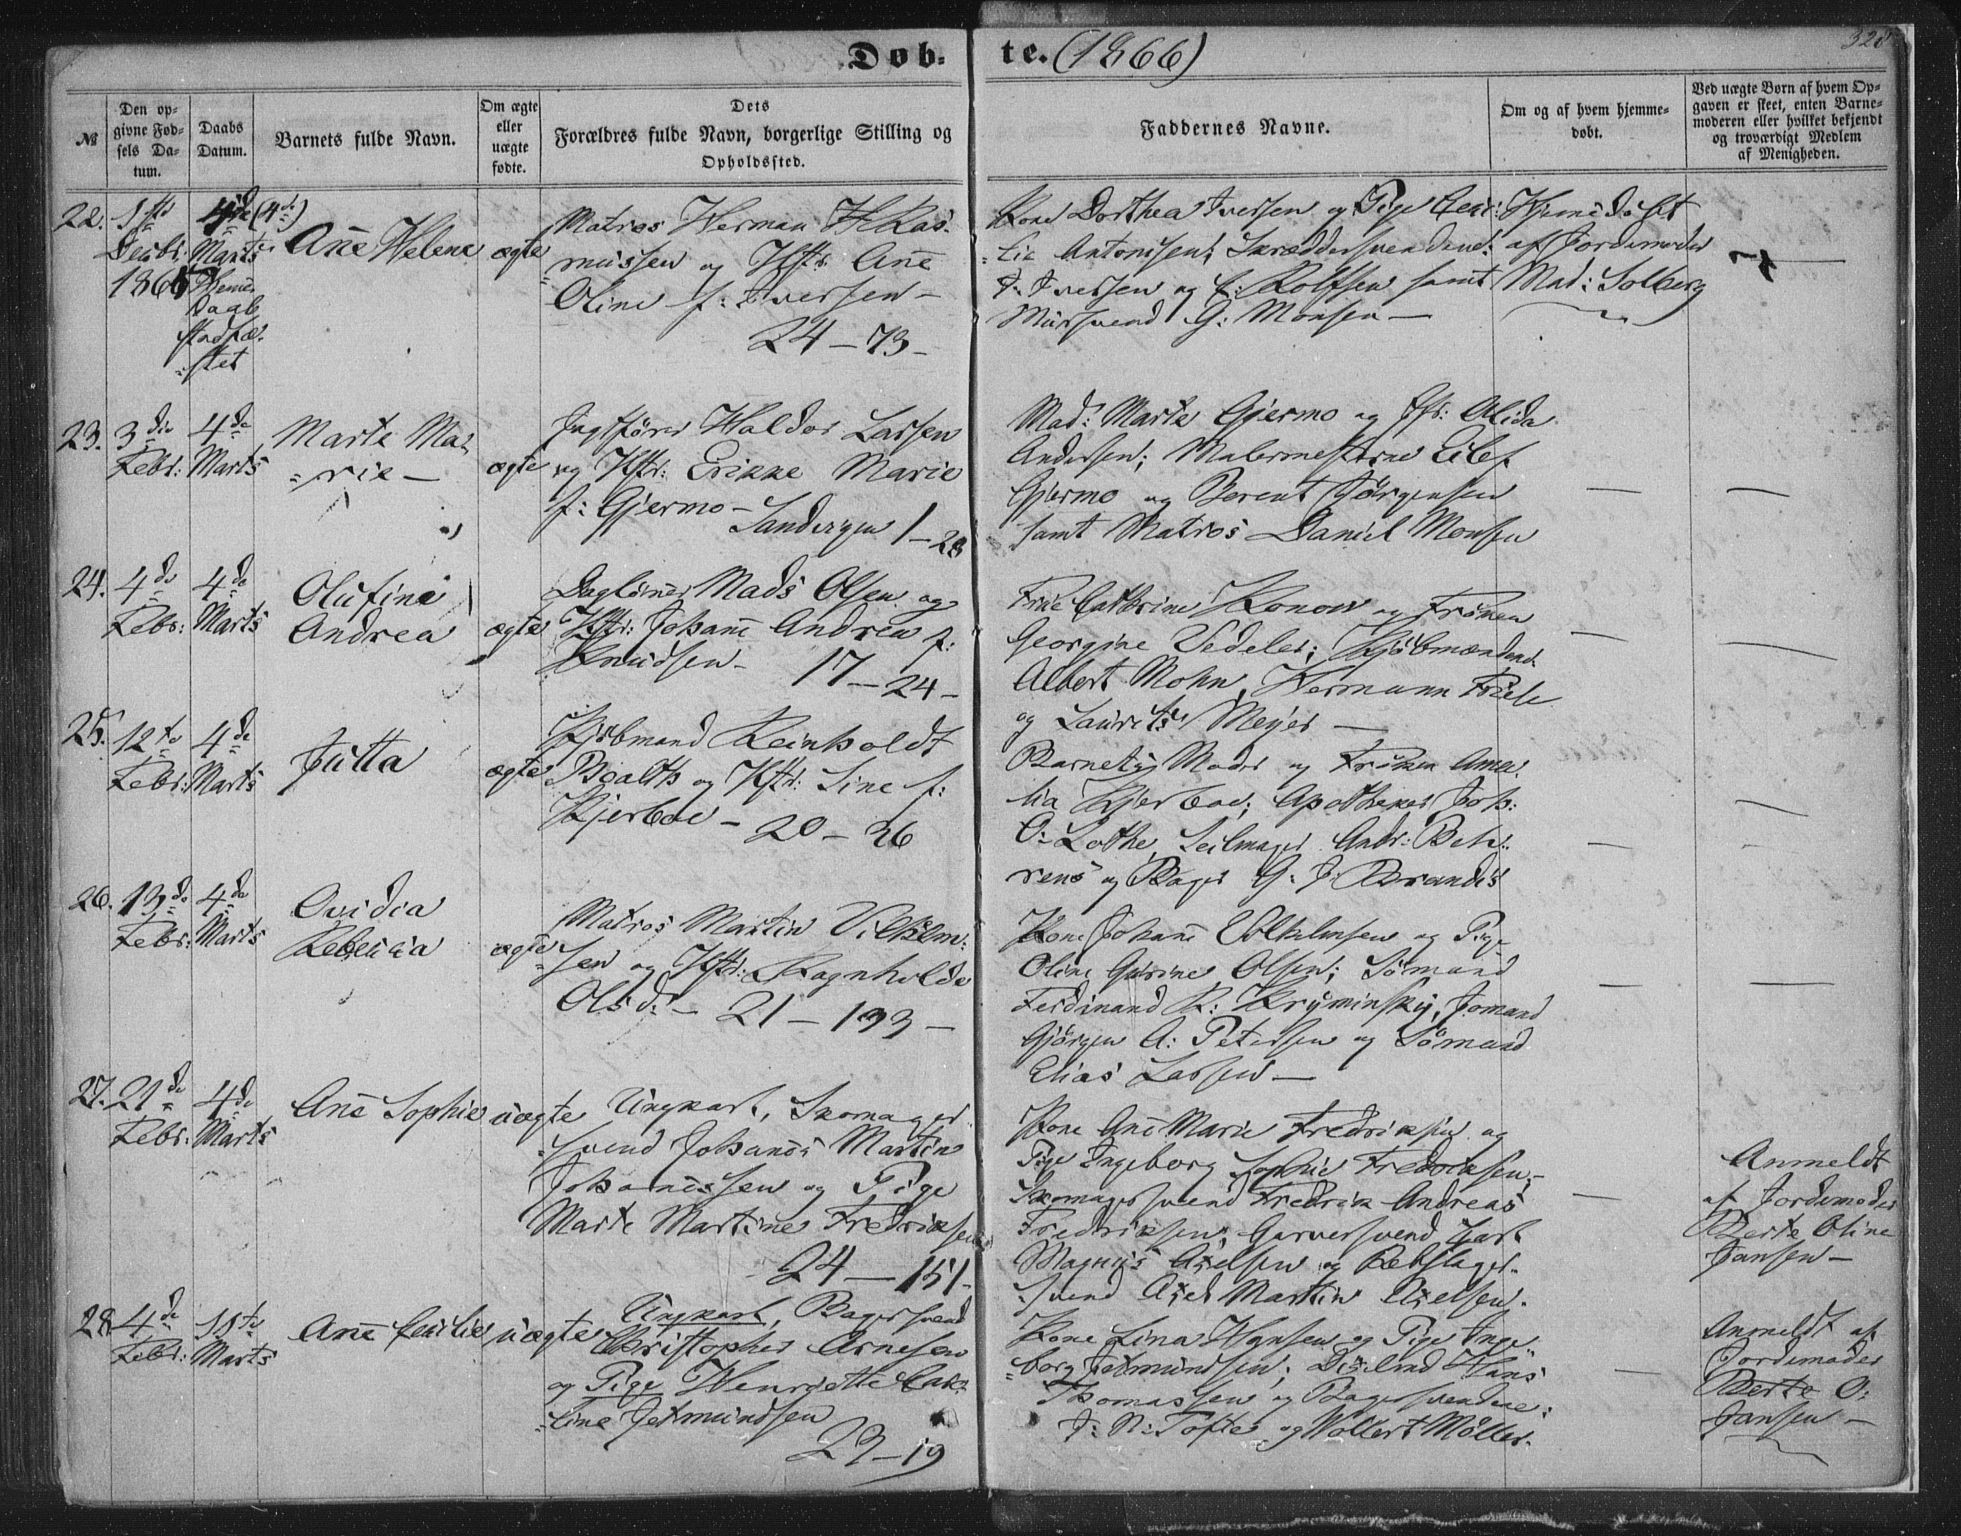 Døb- te. (1866)
328
№
Den op-
givne Fød-
sels Da-
tum.
Daabs
Datum.
Barnets fulde Navn.
Om ægte
eller
uægte
fødte.
Dets
Forældres fulde Navn, borgerlige Stilling og
Opholdssted.
Faddernes Navne.
Om og af hvem hjemme-
døbt.
Ved uægte Børn af hvem Op-
gaven er skeet, enten Barne-
moderen eller hvilket bekjendt
og troværdigt Medlem
af Menigheden.
22.
1ste
Decbr:
1865
4de (4de)
Marts
Hjeme
Daab
stadfæ-
stet
Ane Helene
ægte
Matros Herman H. Ras-
mussen og Hstr. Ane
Oline f: Iversen —
24 — 73 —
Kone Dorthea Iversen og Pige Ceci-
lie Antonisen; Skræddersvendene:
I. Iversen og E: Rolfsen samt
Mursvend G: Monsen —
Hjeme døbt
af Jordemoder
Mad: Solberg
23.
3die
Febr:
4de
Marts
Marte Ma-
rie —
ægte
Jagtfører Haldor Larsen
og Hstr: Erikke Marie
f: Gjermo —
Sandvigen 1 — 28
Mad: Marte Gjermo og Jfr: Alida
Andersen; Malermestrene Eilef
Gjermo og Berent Jørgensen
samt Matros Daniel Monsen
24.
4de
Febr:
4de
Marts
Olufine
Andrea
ægte
Daglønner Mads Olsen og
Hstr: Johane Andrea f:
Knudsen —
17 — 24 —
Frue Cathrine Konow og Frøken
Georgine Vedeler; Kjøbmændene
Albert Mohn, Hermann Friele
og Laurits Meyer —
25.
12te
Febr:
4de
Marts
Jutta
ægte
Kjøbmand Reinholdt
Boalth og Hstr: Sine f:
Kjerboe — 20 — 36
Barnets Moder og Frøken Ama-
lia Kjerboe; Apotheker Joh:
O: Lothe, Seilmager Andr: Beh-
rens og Bager G. J. Brandis
26.
13de
Febr:
4de
Marts
Ovidia
Rebecca
ægte
Matros Martin Vilhelm-
sen og Hstr: Ragnhilde
Olsd: — 21 — 133 —
Kone Johane Vilhelmsen og Pige
Oline Gurine Olsen; Sømand
Ferdinand R: Kryminsky, Jomand
Gjørgen A: Petersen og Sømand
Elias Larsen —
27.
21de
Febr:
4de
Marts
Ane Sophie
uægte
Ungkarl, Skomager
svend Johanes Martin
Johanessen og Pige
Marte Martine Fredriksen
24 — 151 —
Kone Ane Marie Fredriksen og
Pige Ingeborg Sophie Fredriksen;
Skomagersvend Fredrik Andreas
Fredriksen, Garversvend Carl
Magnus Axelsen og Rebslager-
svend Axel Martin Axelsen.
Anmeldt
af Jordemoder
Berte Oline
Jansen —
28.
4de
Febr:
11te
Marts
Ane Cecilie
uægte
Ungkarl, Bagersvend
Christopher Arnesen
og Pige Henriette Cat-
rine Jetmundsen
23 — 19
Kone Lina Hansen og Pige Inge-
borg Jetmundsen; Hans
Thomassen og Bagersvendene:
J: N: Tofte og Wollert Møller.
Anmeldt af
Jordemoder
Berte O:
Jansen —